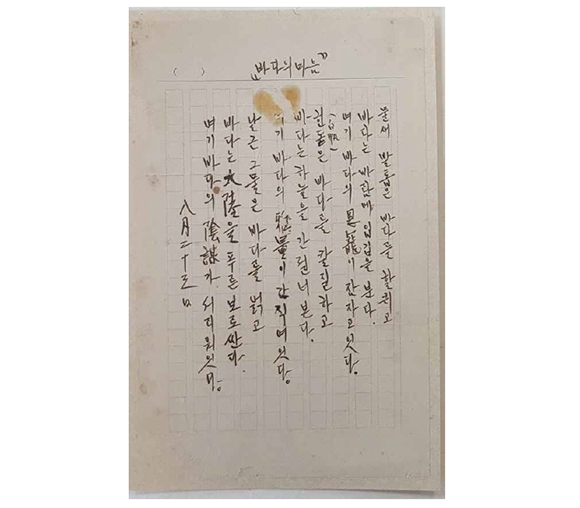 ( )
“바다의 마음”
물새 발톱은 바다를 할퀴고
바다는 바람에 입김을 분다.
여기 바다의 恩寵이 잠자고잇다.
흰돛은 (白帆) 바다를 칼질하고
바다는 하늘을 간질너 본다.
여기 바다의 雅量이 간직여잇다.
날근 그물은 바다를 얽고
바다는 大陸을 푸른 보로싼다.
여기 바다의 陰謀가 서리워잇다.
八月二十三日